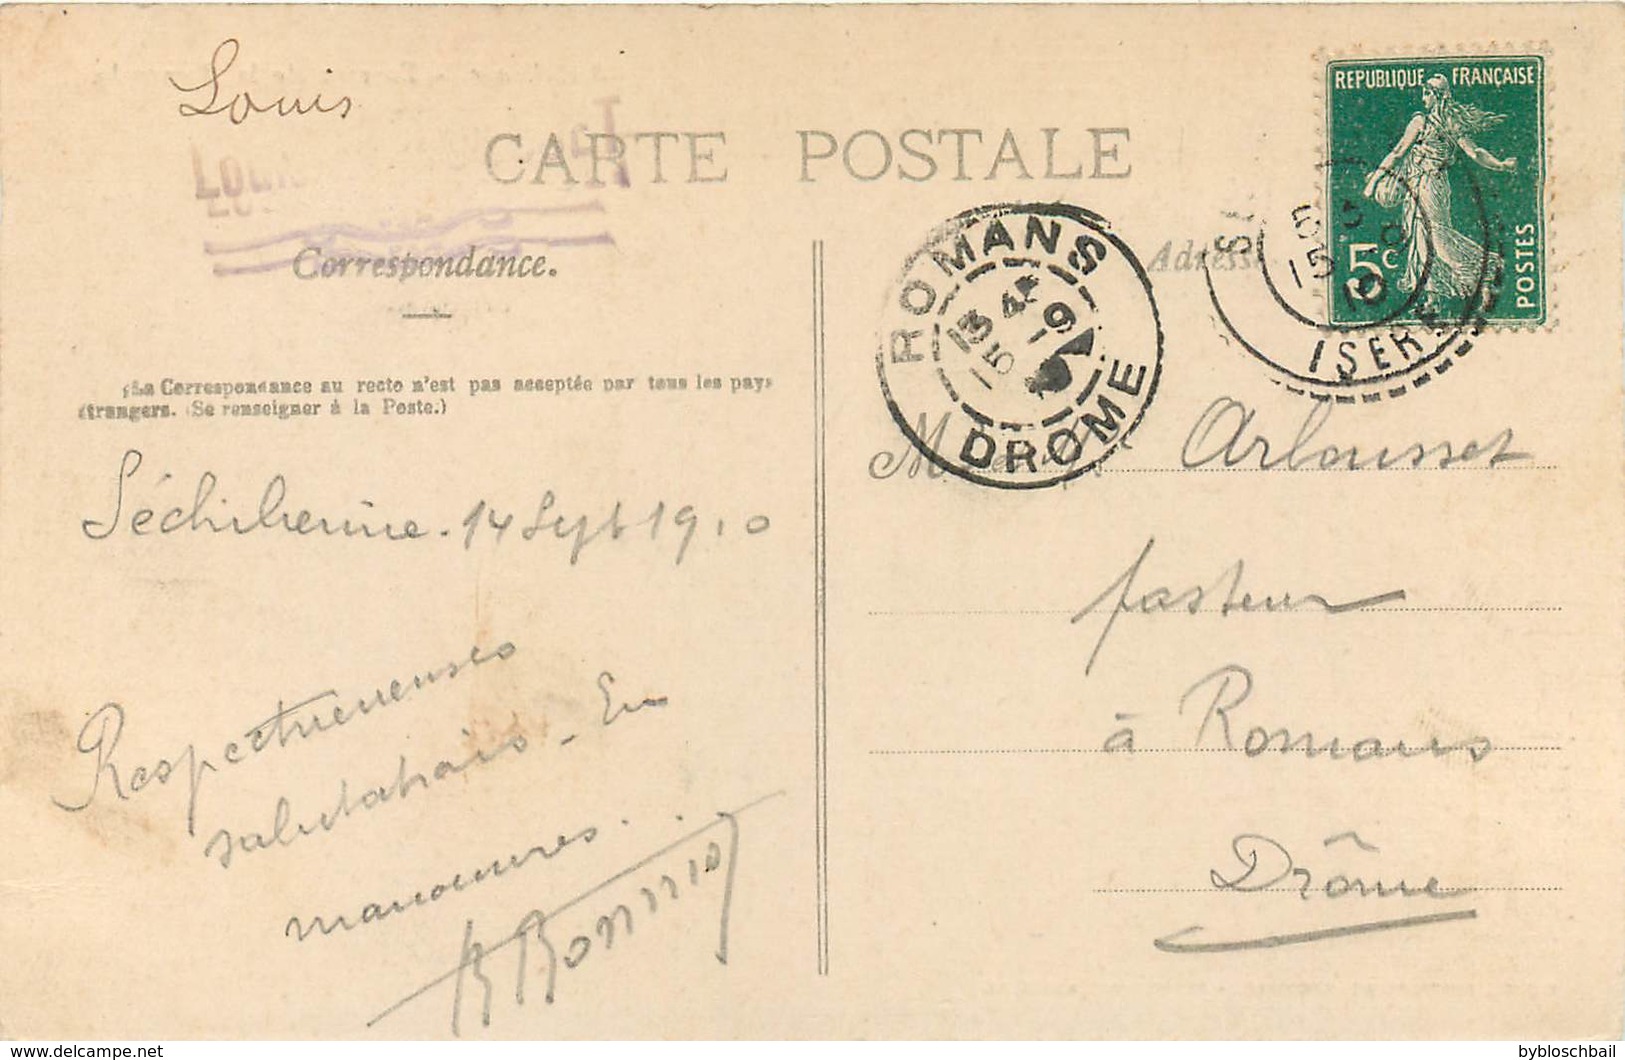 Louis
CARTE POSTALE
Correspondance.
Adresse
REPUBLIQUE FRANÇAISE
5c
POSTES
ROMANS
13
15 9
DROME
ISERE
15
10
La Correspondance au recto n'est pas acceptée par tous les pays
étrangers. (Se renseigner à la Poste.)
Séchilienne. 14 Sept 1910
Respectueuses
salutations - En
manoeuvres...
M Arbousset
pasteur
à Romans
Drôme
delcampe.net
bybloschbail